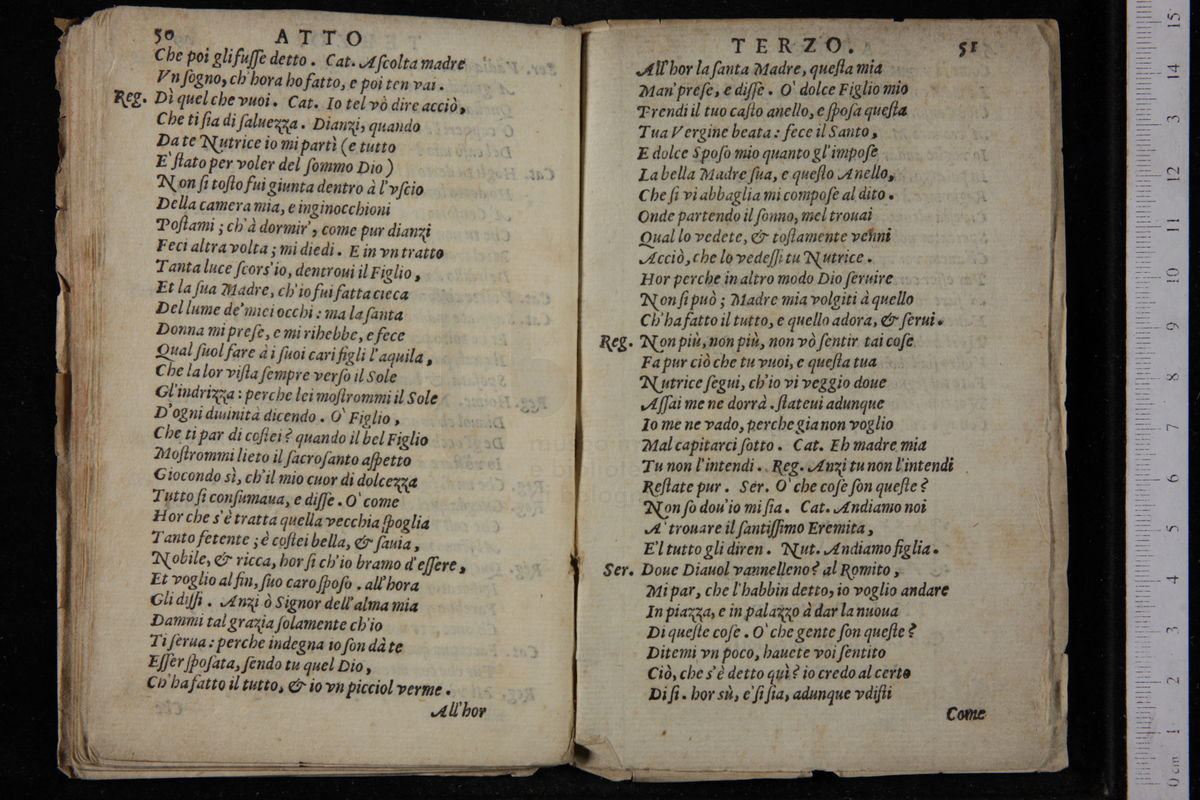 50 ATTO
Che poi gli fuſſe detto. Cat. Aſcolta madre
Vn ſogno, ch'hora ho fatto, e poi ten vai.
Reg. Dì quel che vuoi. Cat. Io tel vò dire acciò,
Che ti ſia di ſaluezza. Dianzi, quando
Da te Nutrice io mi partì (e tutto
E' ſtato per voler del ſommo Dio)
Non ſi toſto fui giunta dentro à l'vſcio
Della camera mia, e inginocchioni
Poſtami; ch'à dormir', come pur dianzi
Feci altra volta; mi diedi. E in vn tratto
Tanta luce ſcors'io, dentroui il Figlio,
Et la ſua Madre, ch'io fui fatta cieca
Del lume de'miei occhi: ma la ſanta
Donna mi preſe, e mi rihebbe, e fece
Qual ſuol fare à i ſuoi cari figli l'aquila,
Che la lor viſta ſempre verſo il Sole
Gl'indrizza: perche lei moſtrommi il Sole
D'ogni diuinità dicendo. O' Figlio,
Che ti par di coſtei? quando il bel Figlio
Moſtrommi lieto il ſacroſanto aſpetto
Giocondo sì, ch'il mio cuor di dolcezza
Tutto ſi conſumaua, e diſſe. O' come
Hor che s'è tratta quella vecchia ſpoglia
Tanto fetente; è coſtei bella, & ſauia,
Nobile, & ricca, hor ſi ch'io bramo d'eſſere,
Et voglio al fin, ſuo caro ſpoſo. all'hora
Gli diſſi. Anzi ò Signor dell'alma mia
Dammi tal grazia ſolamente ch'io
Ti ſerua: perche indegna io ſon dà te
Eſſer ſpoſata, ſendo tu quel Dio,
Ch'ha fatto il tutto, & io vn picciol verme.
All'hor
TERZO. 51
All'hor la ſanta Madre, queſta mia
Man'preſe, e diſſe. O' dolce Figlio mio
Prendi il tuo caſto anello, e ſpoſa queſta
Tua Vergine beata: fece il Santo,
E dolce Spoſo mio quanto gl'impoſe
La bella Madre ſua, e queſto Anello,
Che ſi vi abbaglia mi compoſe al dito.
Onde partendo il ſonno, mel trouai
Qual lo vedete, & toſtamente venni
Acciò, che lo vedeſſi tu Nutrice.
Hor perche in altro modo Dio ſeruire
Non ſi può; Madre mia volgiti à quello
Ch'ha fatto il tutto, e quello adora, & ſerui.
Reg. Non più, non più, non vò ſentir tai coſe
Fa pur ciò che tu vuoi, e queſta tua
Nutrice ſegui, ch'io vi veggio doue
Aſſai me ne dorrà. ſtateui adunque
Io me ne vado, perche gia non voglio
Mal capitarci ſotto. Cat. Eh madre mia
Tu non l'intendi. Reg. Anzi tu non l'intendi
Reſtate pur. Ser. O' che coſe ſon queſte?
Non ſo dou'io mi ſia. Cat. Andiamo noi
A' trouare il ſantiſſimo Eremita,
E'l tutto gli diren. Nut. Andiamo figlia.
Ser. Doue Diauol vannelleno? al Romito,
Mi par, che l'habbin detto, io voglio andare
In piazza, e in palazzo à dar la nuoua
Di queſte coſe. O' che gente ſon queſte?
Ditemi vn poco, hauete voi ſentito
Ciò, che s'è detto quì? io credo al certo
Di ſi. hor sù, e' ſi ſia, adunque vdiſti
Come